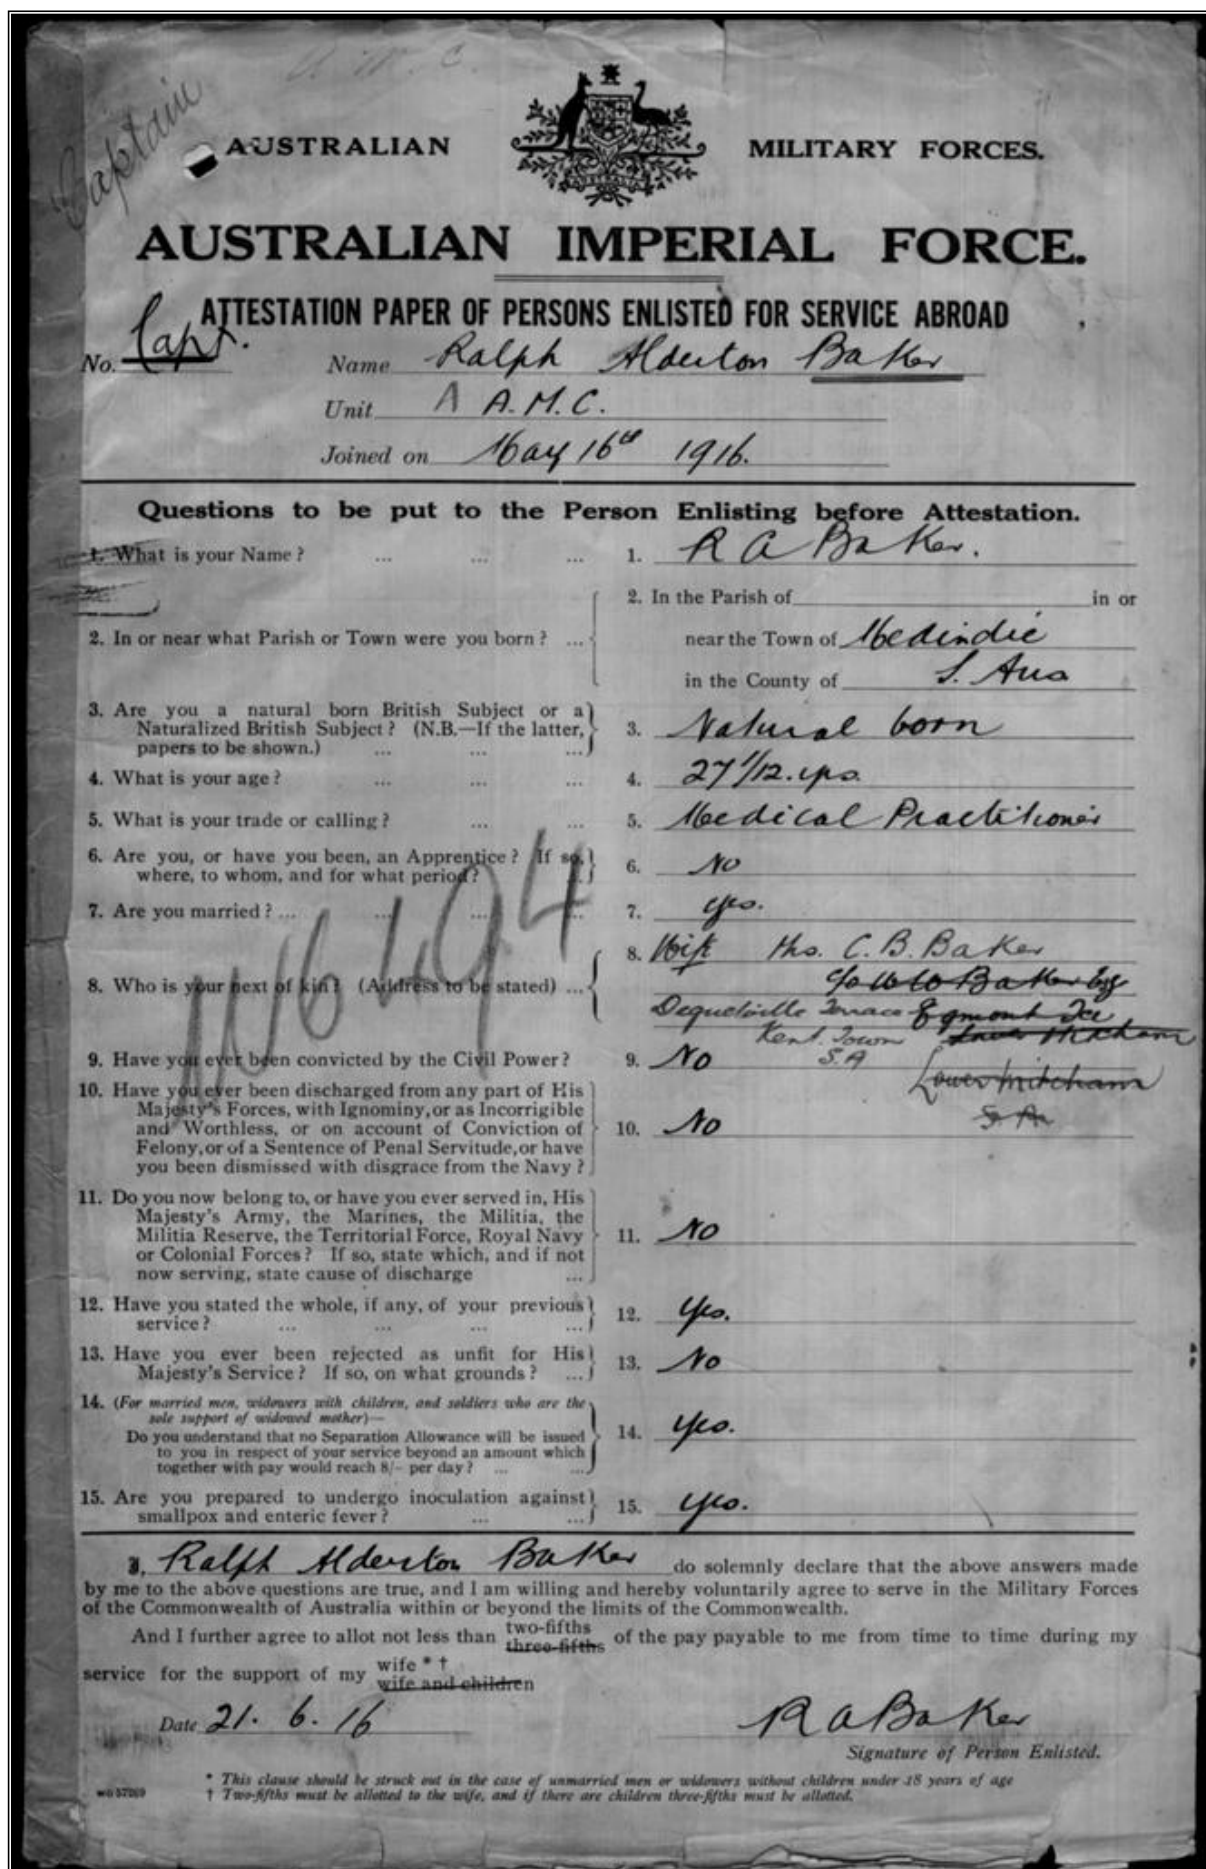 A. M. C.
Captain
AUSTRALIAN MILITARY FORCES.
AUSTRALIA
AUSTRALIAN IMPERIAL FORCE.
ATTESTATION PAPER OF PERSONS ENLISTED FOR SERVICE ABROAD
No. Capt. Name Ralph Alderton Baker
Unit A A.M.C.
Joined on May 16th 1916.
Questions to be put to the Person Enlisting before Attestation.
1. What is your Name? ... ... ... 1. R A Baker.
2. In the Parish of in or
2. In or near what Parish or Town were you born? ... near the Town of Medindie
in the County of S. Aus
3. Are you a natural born British Subject or a
Naturalized British Subject? (N.B.—If the latter, 3. Natural born
papers to be shown.) ... ... ...
4. What is your age? ... ... ... 4. 27 1/12 yrs.
5. What is your trade or calling? ... ... 5. Medical Practitioner
6. Are you, or have you been, an Apprentice? If so,
where, to whom, and for what period? 6. No
7. Are you married? ... ... ... ... 7. yes.
8. Wife Mrs. C. B. Baker
8. Who is your next of kin? (Address to be stated) ... c/o W W Baker Esq
Dequetville Terrace Egmont Tce
Kent Town Lower Mitcham
9. Have you ever been convicted by the Civil Power? 9. No S.A
Lower Mitcham
S. A.
10. Have you ever been discharged from any part of His
Majesty's Forces, with Ignominy, or as Incorrigible
and Worthless, or on account of Conviction of 10. No
Felony, or of a Sentence of Penal Servitude, or have
you been dismissed with disgrace from the Navy?
11. Do you now belong to, or have you ever served in, His
Majesty's Army, the Marines, the Militia, the
Militia Reserve, the Territorial Force, Royal Navy 11. No
or Colonial Forces? If so, state which, and if not
now serving, state cause of discharge ...
12. Have you stated the whole, if any, of your previous
service? ... ... ... ... 12. Yes.
13. Have you ever been rejected as unfit for His
Majesty's Service? If so, on what grounds? ... 13. No
14. (For married men, widowers with children, and soldiers who are the
sole support of widowed mother)—
Do you understand that no Separation Allowance will be issued 14. Yes.
to you in respect of your service beyond an amount which
together with pay would reach 8/- per day? ... ...
15. Are you prepared to undergo inoculation against
smallpox and enteric fever? ... ... 15. Yes.
I, Ralph Alderton Baker do solemnly declare that the above answers made
by me to the above questions are true, and I am willing and hereby voluntarily agree to serve in the Military Forces
of the Commonwealth of Australia within or beyond the limits of the Commonwealth.
And I further agree to allot not less than two-fifths three-fifths of the pay payable to me from time to time during my
service for the support of my wife * † wife and children
Date 21. 6. 16 R A Baker
Signature of Person Enlisted.
* This clause should be struck out in the case of unmarried men or widowers without children under 18 years of age
† Two-fifths must be allotted to the wife, and if there are children three-fifths must be allotted.